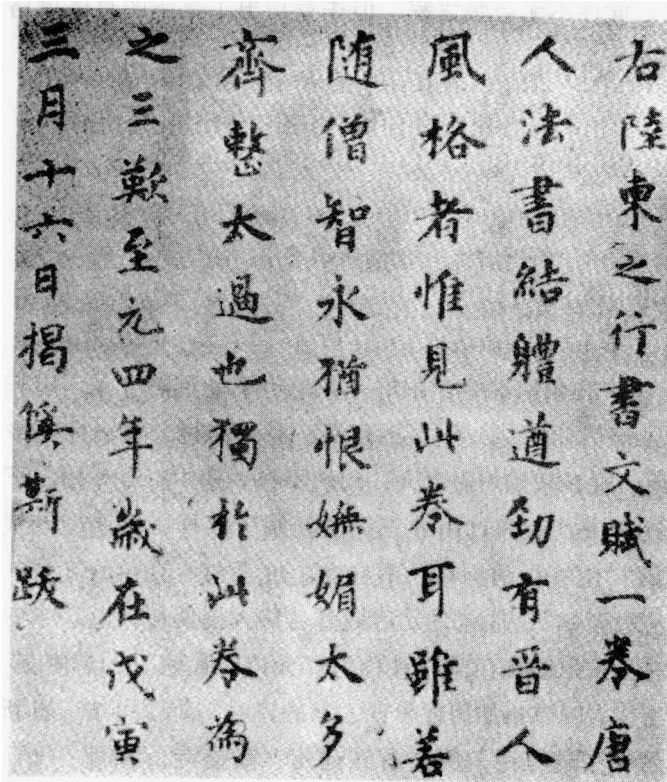 右陸東之行書文賦一卷唐
人法書結體遒勁有晉人
風格者惟見此卷耳雖若
隨僧智永猶恨嫵媚太多
齊整太過也獨於此卷為
之三歎至元四年歲在戊寅
三月十六日揭傒斯跋